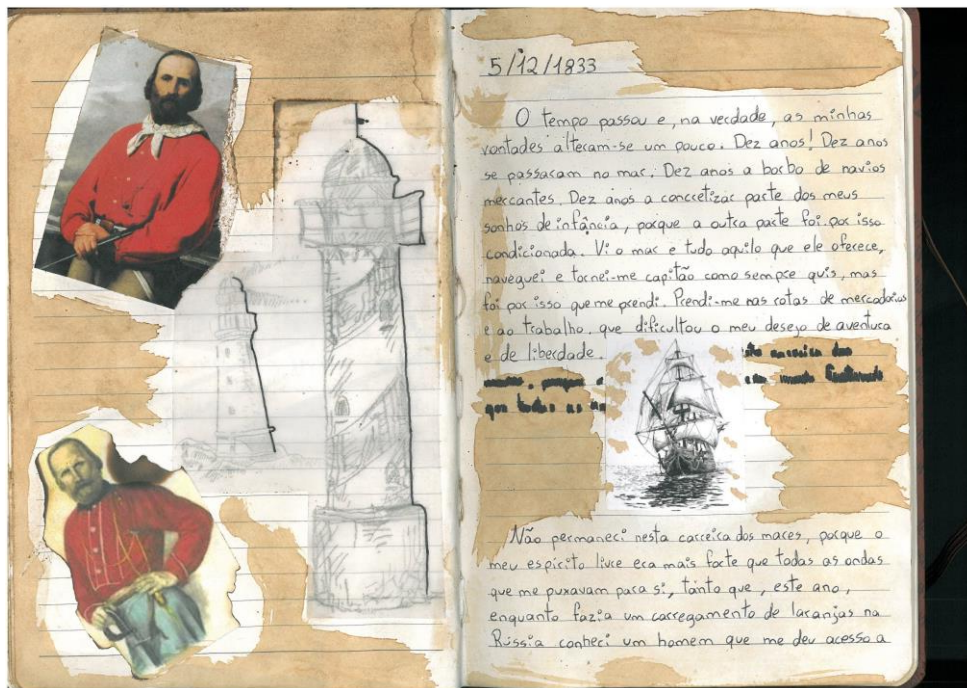 5/12/1833
O tempo passou e, na verdade, as minhas
vontades alteram-se um pouco. Dez anos! Dez anos
se passaram no mar. Dez anos a borbo de navios
mercantes. Dez anos a concretizar parte dos meus
sonhos de infância, porque a outra parte foi por isso
condicionada. Vi o mar e tudo aquilo que ele oferece,
naveguei e tornei-me capitão como sempre quis, mas
foi por isso que me prendi. Prendi-me nas rotas de mercadorias
e ao trabalho, que dificultou o meu desejo de aventura
e de liberdade. carreira dos
porque
que todas as
Não permaneci nesta carreira dos mares, porque o
meu espírito livre era mais forte que todas as ondas
que me puxavam para si, tanto que, este ano,
enquanto fazia um carregamento de laranjas na
Rússia conheci um homem que me deu acesso a